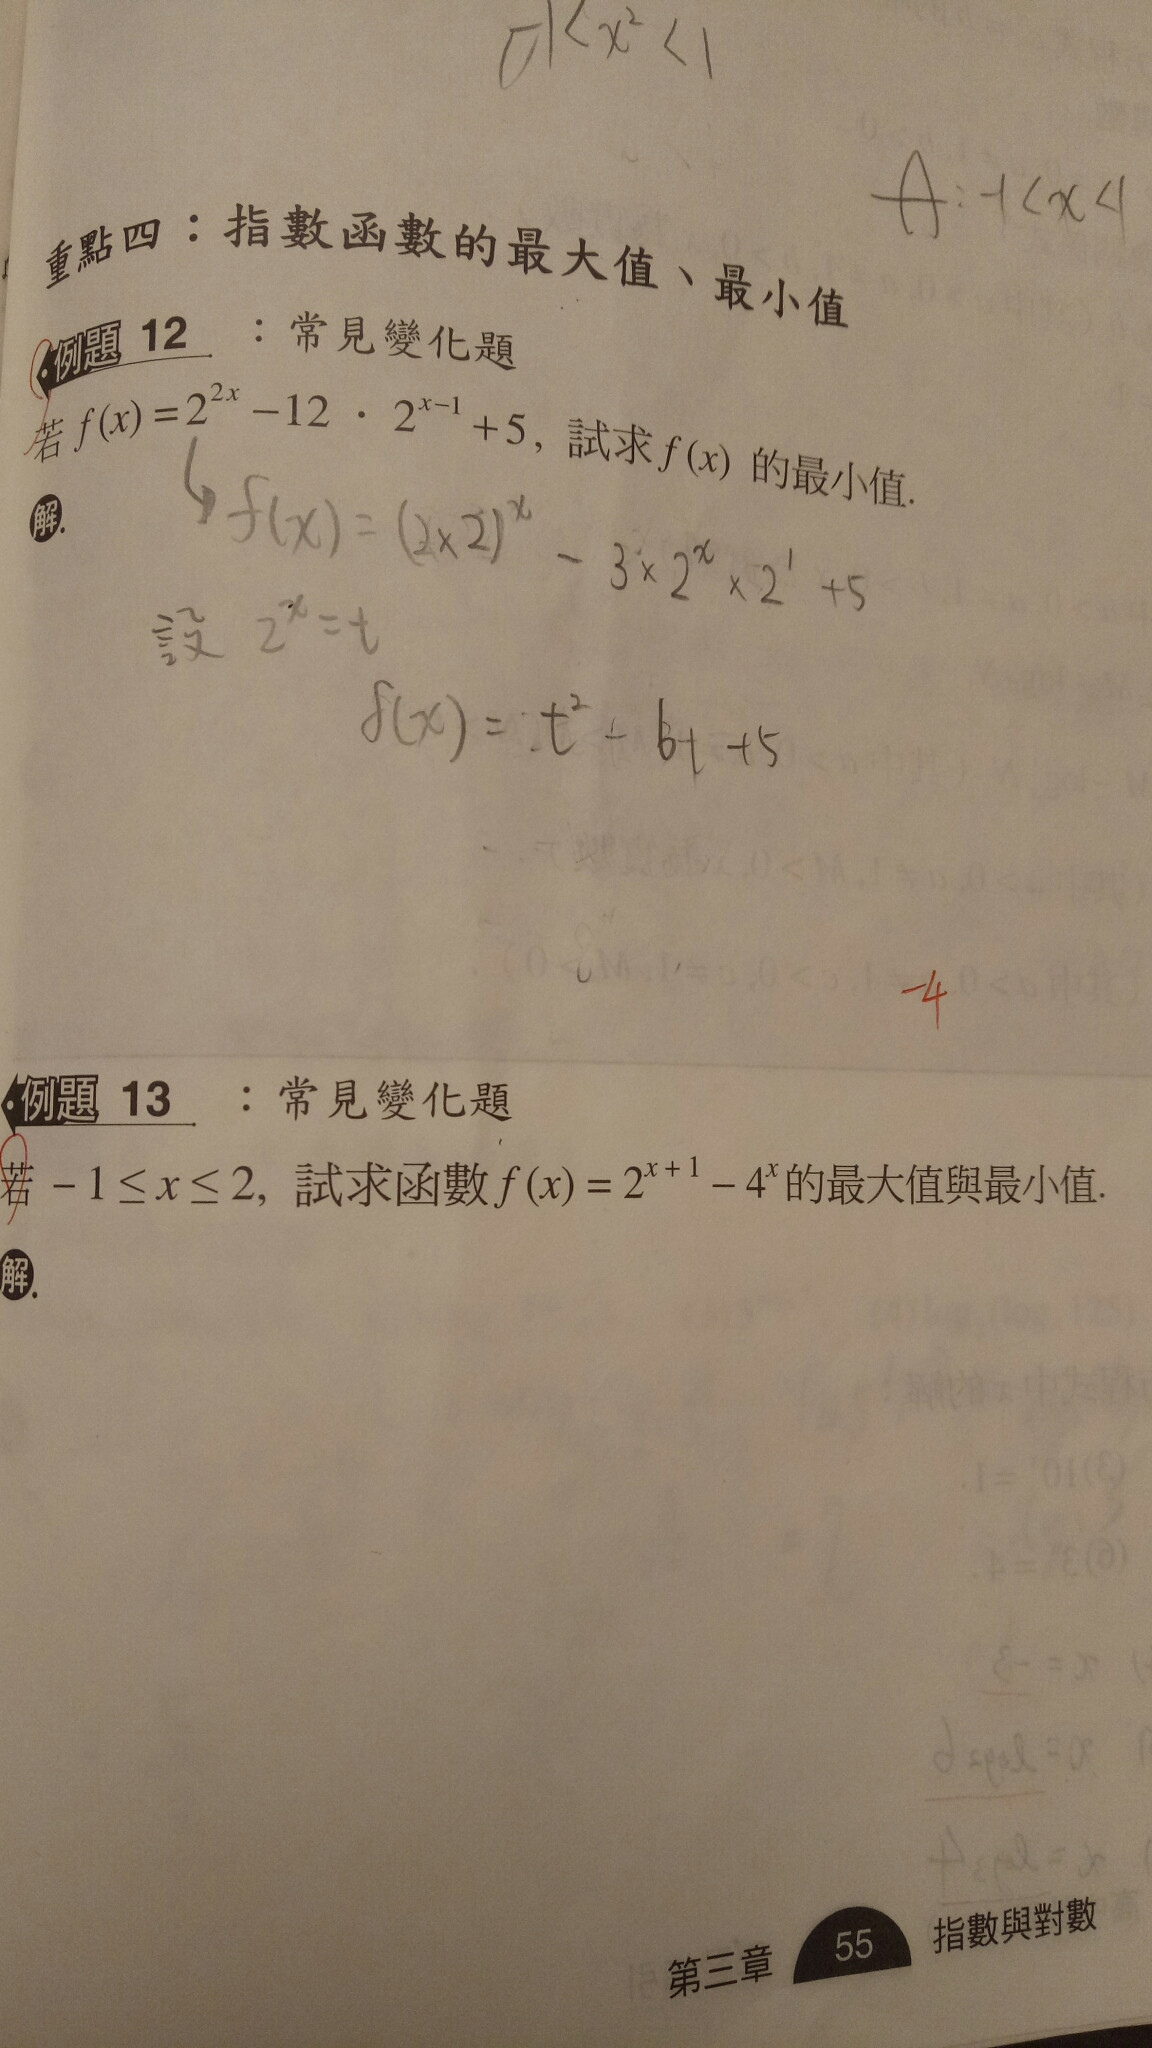 -1<x²<1
A:-1<x<1
重點四：指數函數的最大值、最小值
例題 12 ：常見變化題
若 f(x)=2^{2x}-12 · 2^{x-1}+5, 試求 f(x) 的最小值.
解.
f(x)=(2×2)^x - 3×2^x×2^1 +5
設 2^x=t
f(x)=t²-6t+5
-4
例題 13 ：常見變化題
若 -1≤x≤2, 試求函數 f(x)=2^{x+1}-4^x 的最大值與最小值.
解.
第三章 55 指數與對數